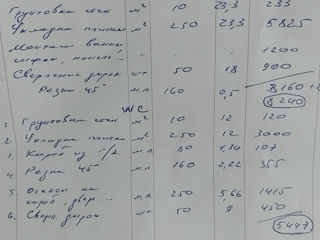 Грунтовка стен м² 10 23,3 233
Укладка плитки м² 250 23,3 5825
Монтаж ванны
сифон, панель... - - - 1200
Сверление дырок шт 50 18 900
Резка 45° м.п 160 0,5
8160 +
8240
WC
1. Грунтовка стен м² 10 12 120
2. Укладка плитки м² 250 12 3000
3. Короб из г/к м.п. 80 1,34 107
4. Резка 45° м.п 160 2,22 355
5. Откосы на
короб, двер... м.п. 250 5,66 1415
6. Сверл. дырок шт 50 9 450
5447